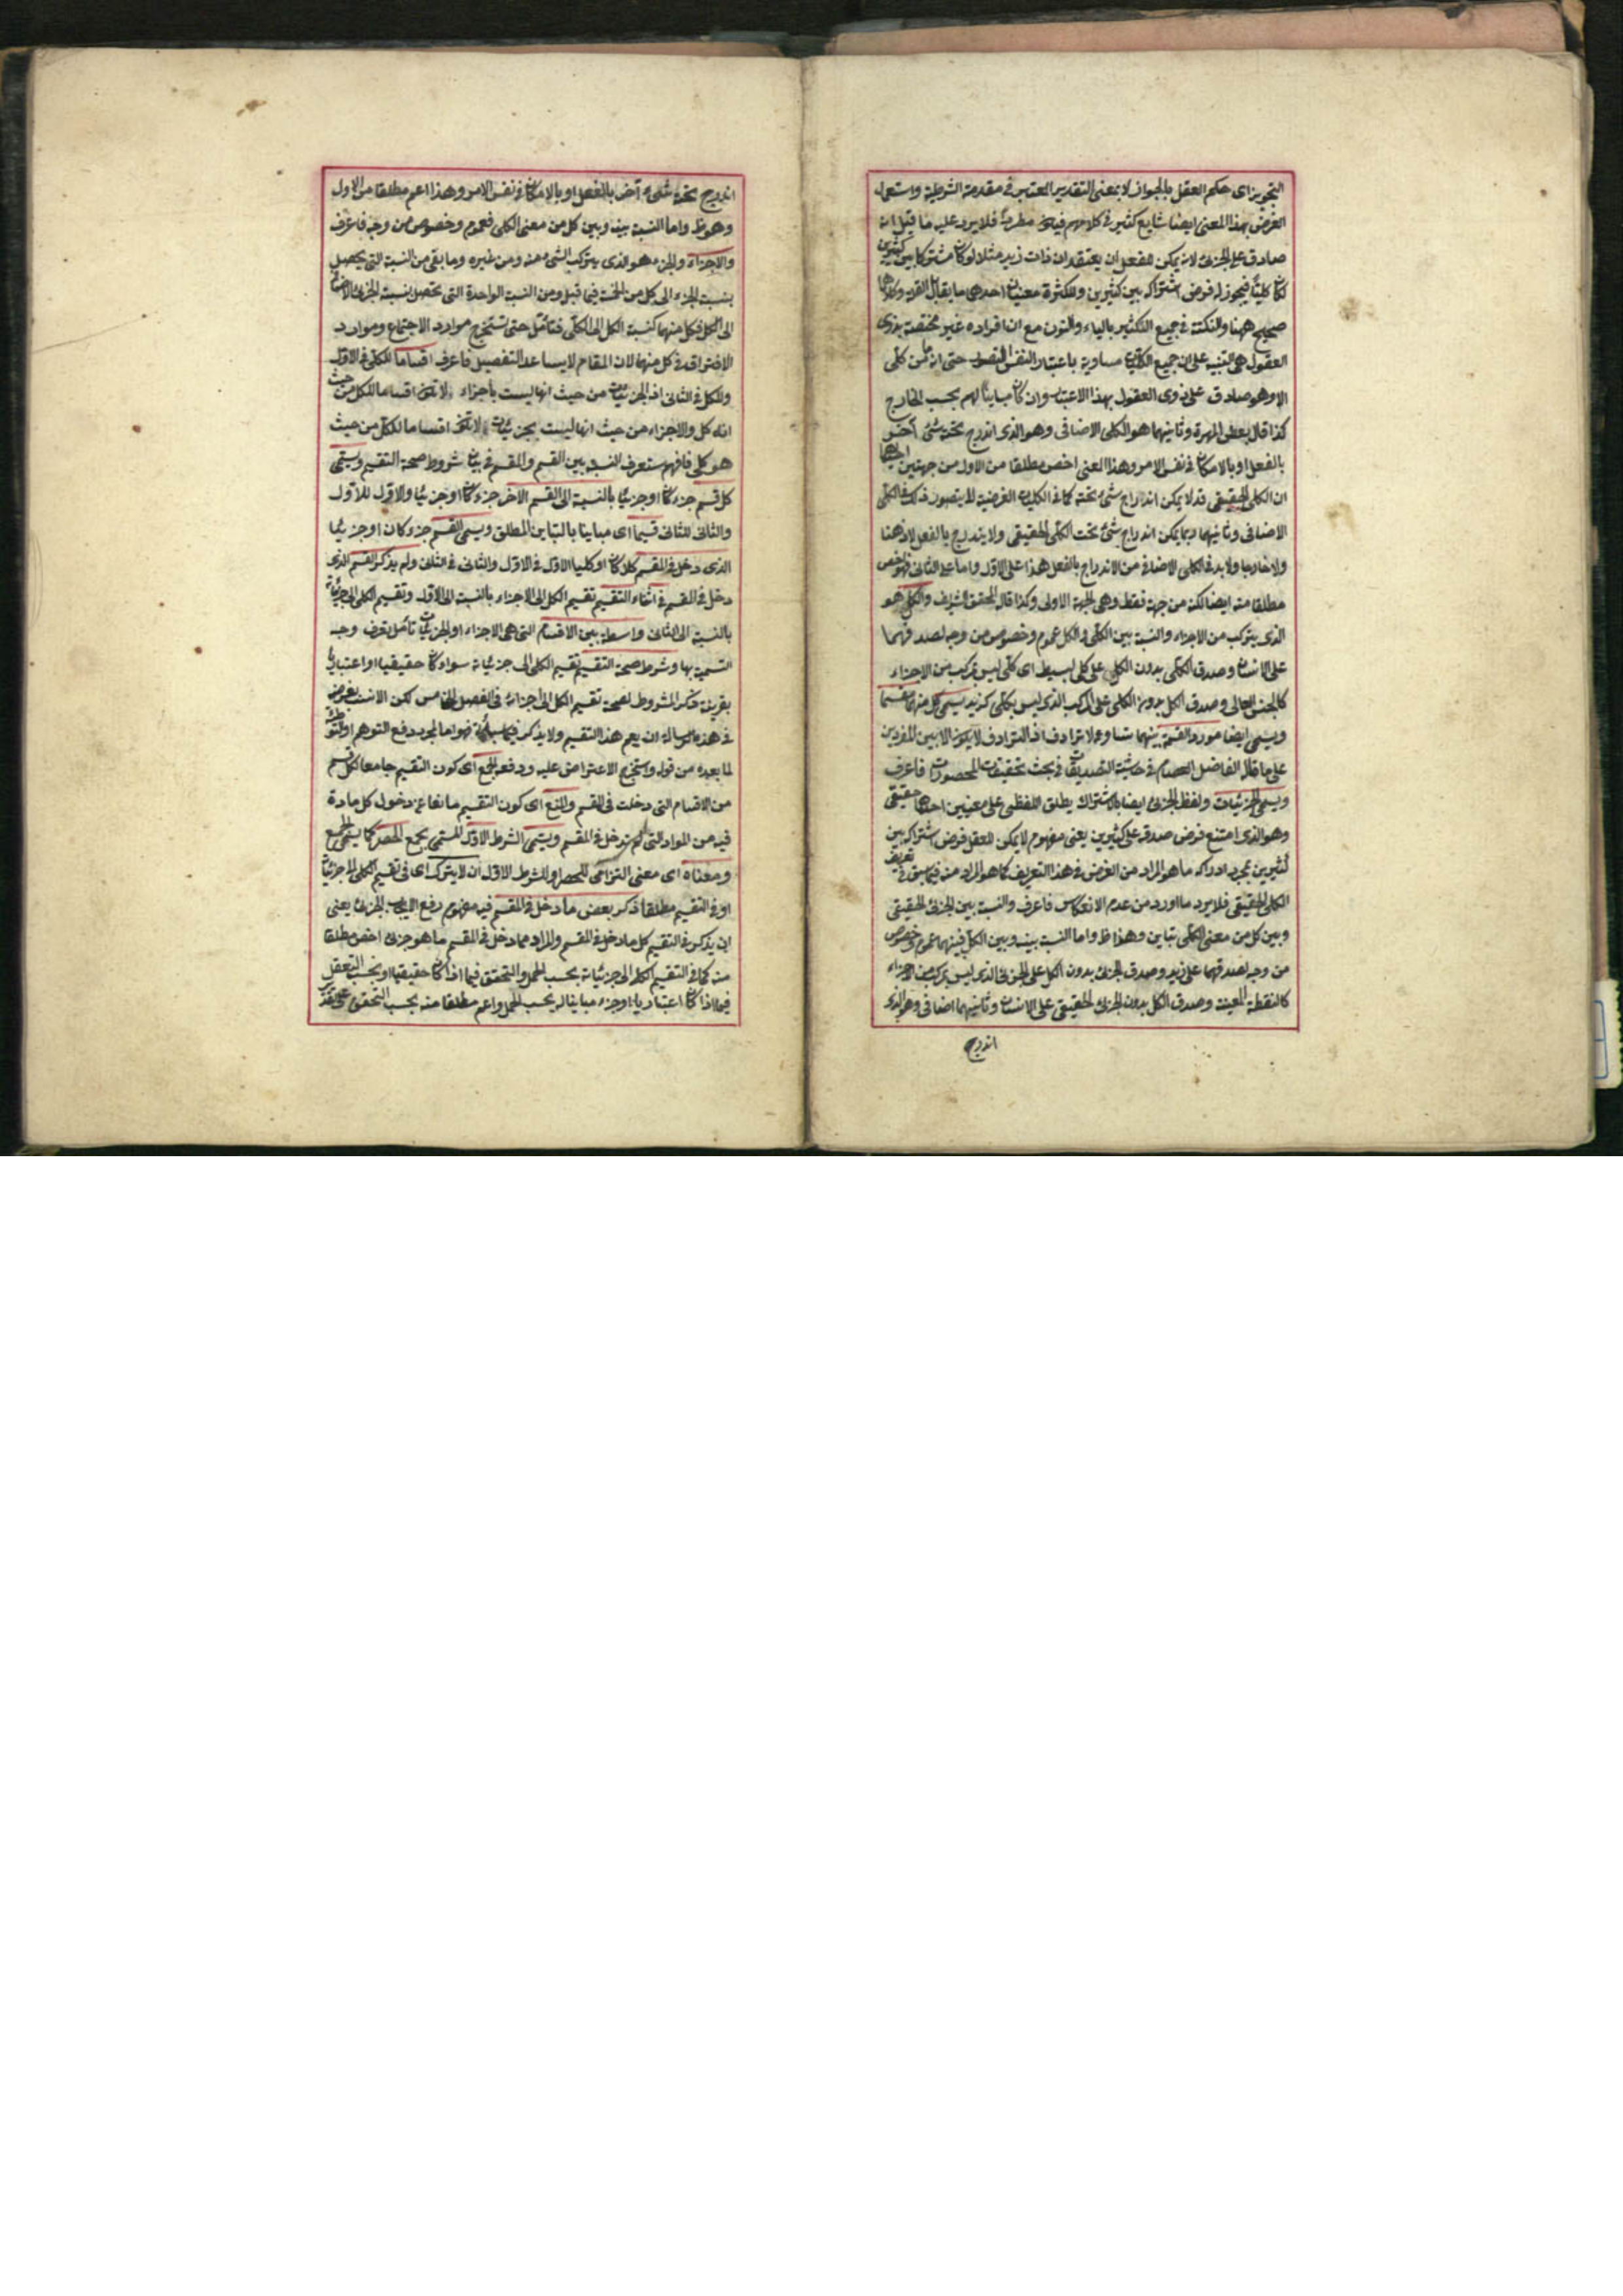 التجويز اى حكم العقل بالجواز لا بمعنى التقدير المعتبر فى مقدمة الشرطية واستعمال
الفرض بهذا المعنى ايضا شايع كثير فى كلامهم فلا يرد عليه ما قيل انه
صادق على الجزئى لانه يمكن للعقل ان يعتقد ان ذات زيد مثلا لو كان مشتركا بين كثيرين
لكان كليا فيجوز له فرض اشتراكه بين كثيرين وللكثرة معنيان احدهما ما يقابل القلة وكلاهما
صحيح ههنا والنكتة فى جميع التكثير بالياء والنون مع ان افراده غير مختصة بذوى
العقول هى التنبيه على ان جميع الكليات مساوية باعتبار حتى انه ما من كلى
الا وهو صادق على ذوى العقول بهذا الاعتبار وان كان مباينا لهم بحسب الخارج
كذا قال بعض المهرة وثانيهما هو الكلى الاضافى وهو الذى اندرج تحته شئ آخر
بالفعل او بالامكان فى نفس الامر وهذا المعنى اخص مطلقا من الاول من جهتين احديهما
ان الكلى الحقيقى قد لا يمكن اندراج شئ تحته كما فى الكليات الفرضية ولا يتصور ذلك فى الكلى
الاضافى وثانيهما ربما يمكن اندراج شئ تحت الكلى الحقيقى ولا يندرج بالفعل لا ذهنا
ولا خارجا ولا بد فى الكلى الاضافى من الاندراج بالفعل هذا على الاول واما على الثانى فهو اخص
مطلقا منه ايضا لكنه من جهة فقط وهى الجهة الاولى وكذا قال المحقق الشريف والكل هو
الذى يتركب من الاجزاء والنسبة بين الكلى والكل عموم وخصوص من وجه لصدقهما
على الانسان وصدق الكلى بدون الكل على كلى بسيط اى كلى ليس بمركب من الاجزاء
كالجنس العالى وصدق الكل بدون الكلى على المركب الذى ليس بكلى كزيد يسمى كل منهما مقسما
ويسمى ايضا مورد القسمة بينهما تساو ولا ترادف اذ الترادف لا يكون الا بين المفردين
على ما قال الفاضل العصام فى حاشية التصديقات فى بحث تحقيقات المحصورات فاعرف
ويسمى الجزئيات ولفظ الجزئى ايضا بالاشتراك يطلق اللفظى على معنيين احدهما حقيقى
وهو الذى امتنع فرض صدقه على كثيرين يعنى مفهوم لا يمكن للعقل فرض اشتراكه بين
كثيرين بمجرد ادراكه ما هو المراد من الفرض فى هذا التعريف كما هو المراد منه فيما سبق فى تعريف
الكلى الحقيقى فلا يرد ما اورد من عدم الانعكاس فاعرف والنسبة بين الجزئى الحقيقى
وبين كل من معنى الكلى تباين وهذا ظ واما النسبة بينه وبين الكل فبينهما عموم وخصوص
من وجه لصدقهما على زيد وصدق الجزئى بدون الكل على الجزئى الذى ليس بمركب من الاجزاء
كالنقطة المعينة وصدق الكل بدون الجزئى الحقيقى على الانسان وثانيهما اضافى وهو الذى
اندرج
اندرج تحت شئ آخر بالفعل او بالامكان فى نفس الامر وهذا اعم مطلقا من الاول
وهو ظ واما النسبة بينه وبين كل من معنى الكلى فعموم وخصوص من وجه فاعرف
والاجزاء والجزء هو الذى يتركب الشئ منه ومن غيره وما بقى من النسبة التى يحصل
بنسبة الجزء الى كل من الخمسة فيما قبل ومن النسبة الواحدة التى تحصل بنسبة الجزئى الاضافى
الى الكل فكل منهما كنسبة الكل الى الكلى فتأمل حتى تستخرج موارد الاجتماع وموارد
الافتراق فى كل منهما لان المقام لا يساعد التفصيل فاعرف اقساما للكلى فى الاول
وللكل فى الثانى اذ الجزئيات من حيث انها ليست بأجزاء لا تكون اقساما للكل من حيث
انه كل والاجزاء من حيث انها ليست بجزئيات لا تكون اقساما للكلى من حيث
هو كلى فافهم ستعرف النسبة بين القسم والمقسم فى بيان شروط صحة التقسيم ويسمى
كل قسم جزء كان او جزئيا بالنسبة الى القسم الآخر جزء كان او جزئيا والاول للاول
والثانى للثانى قسيما اى مباينا بالتباين المطلق ويسمى القسم جزء كان او جزئيا
الذى دخل فى المقسم كلا كان او كليا الاول فى الاول والثانى فى الثانى ولم يذكر القسم الذى
دخل فى المقسم فى اثناء التقسيم تقسيم الكل الى الاجزاء بالنسبة الى الاول وتقسيم الكلى الى جزئياته
بالنسبة الى الثانى واسطة بين الاقسام التى هى الاجزاء او الجزئيات تأمل تعرف وجه
التسمية بها وشرط صحة التقسيم تقسيم الكلى الى جزئياته سواء كان حقيقيا او اعتباريا
بقرينة ذكر المشروط لصحة تقسيم الكل الى اجزائه فى الفصل الخامس لكن الانسب
فى هذه الرسالة ان يعم هذا التقسيم ولا يذكر فيما سيأتى فهو اما لمجرد دفع التوهم او
لما بعده من قوله واستخرج الاعتراض عليه ودفعه الجمع اى كون التقسيم جامعا لكل قسم
من الاقسام التى دخلت فى المقسم والمنع اى كون التقسيم مانعا عن دخول كل مادة
فيه من المواد التى لم تدخل فى المقسم ويسمى الشرط الاول المسمى بجمع الحصر كما يسمى الجمع
ومعناه اى معنى التزامى للحصر والشرط الاول ان لا يترك اى فى تقسيم الكلى الى جزئياته
او فى التقسيم مطلقا ذكر بعض ما دخل فى المقسم فيه مفهوم رفع الايجاب الجزئى يعنى
ان يذكر فى التقسيم كل ما دخل فى المقسم والمراد مما دخل فى المقسم ما هو جزئى اخص مطلقا
منه كما فى التقسيم الكلى الى جزئياته بحسب الحمل والتحقق فيما اذا كان حقيقيا او بحسب التعقل
فيما اذا كان اعتباريا او جزء مباينا له بحسب الحمل واعم مطلقا منه بحسب التحقق على